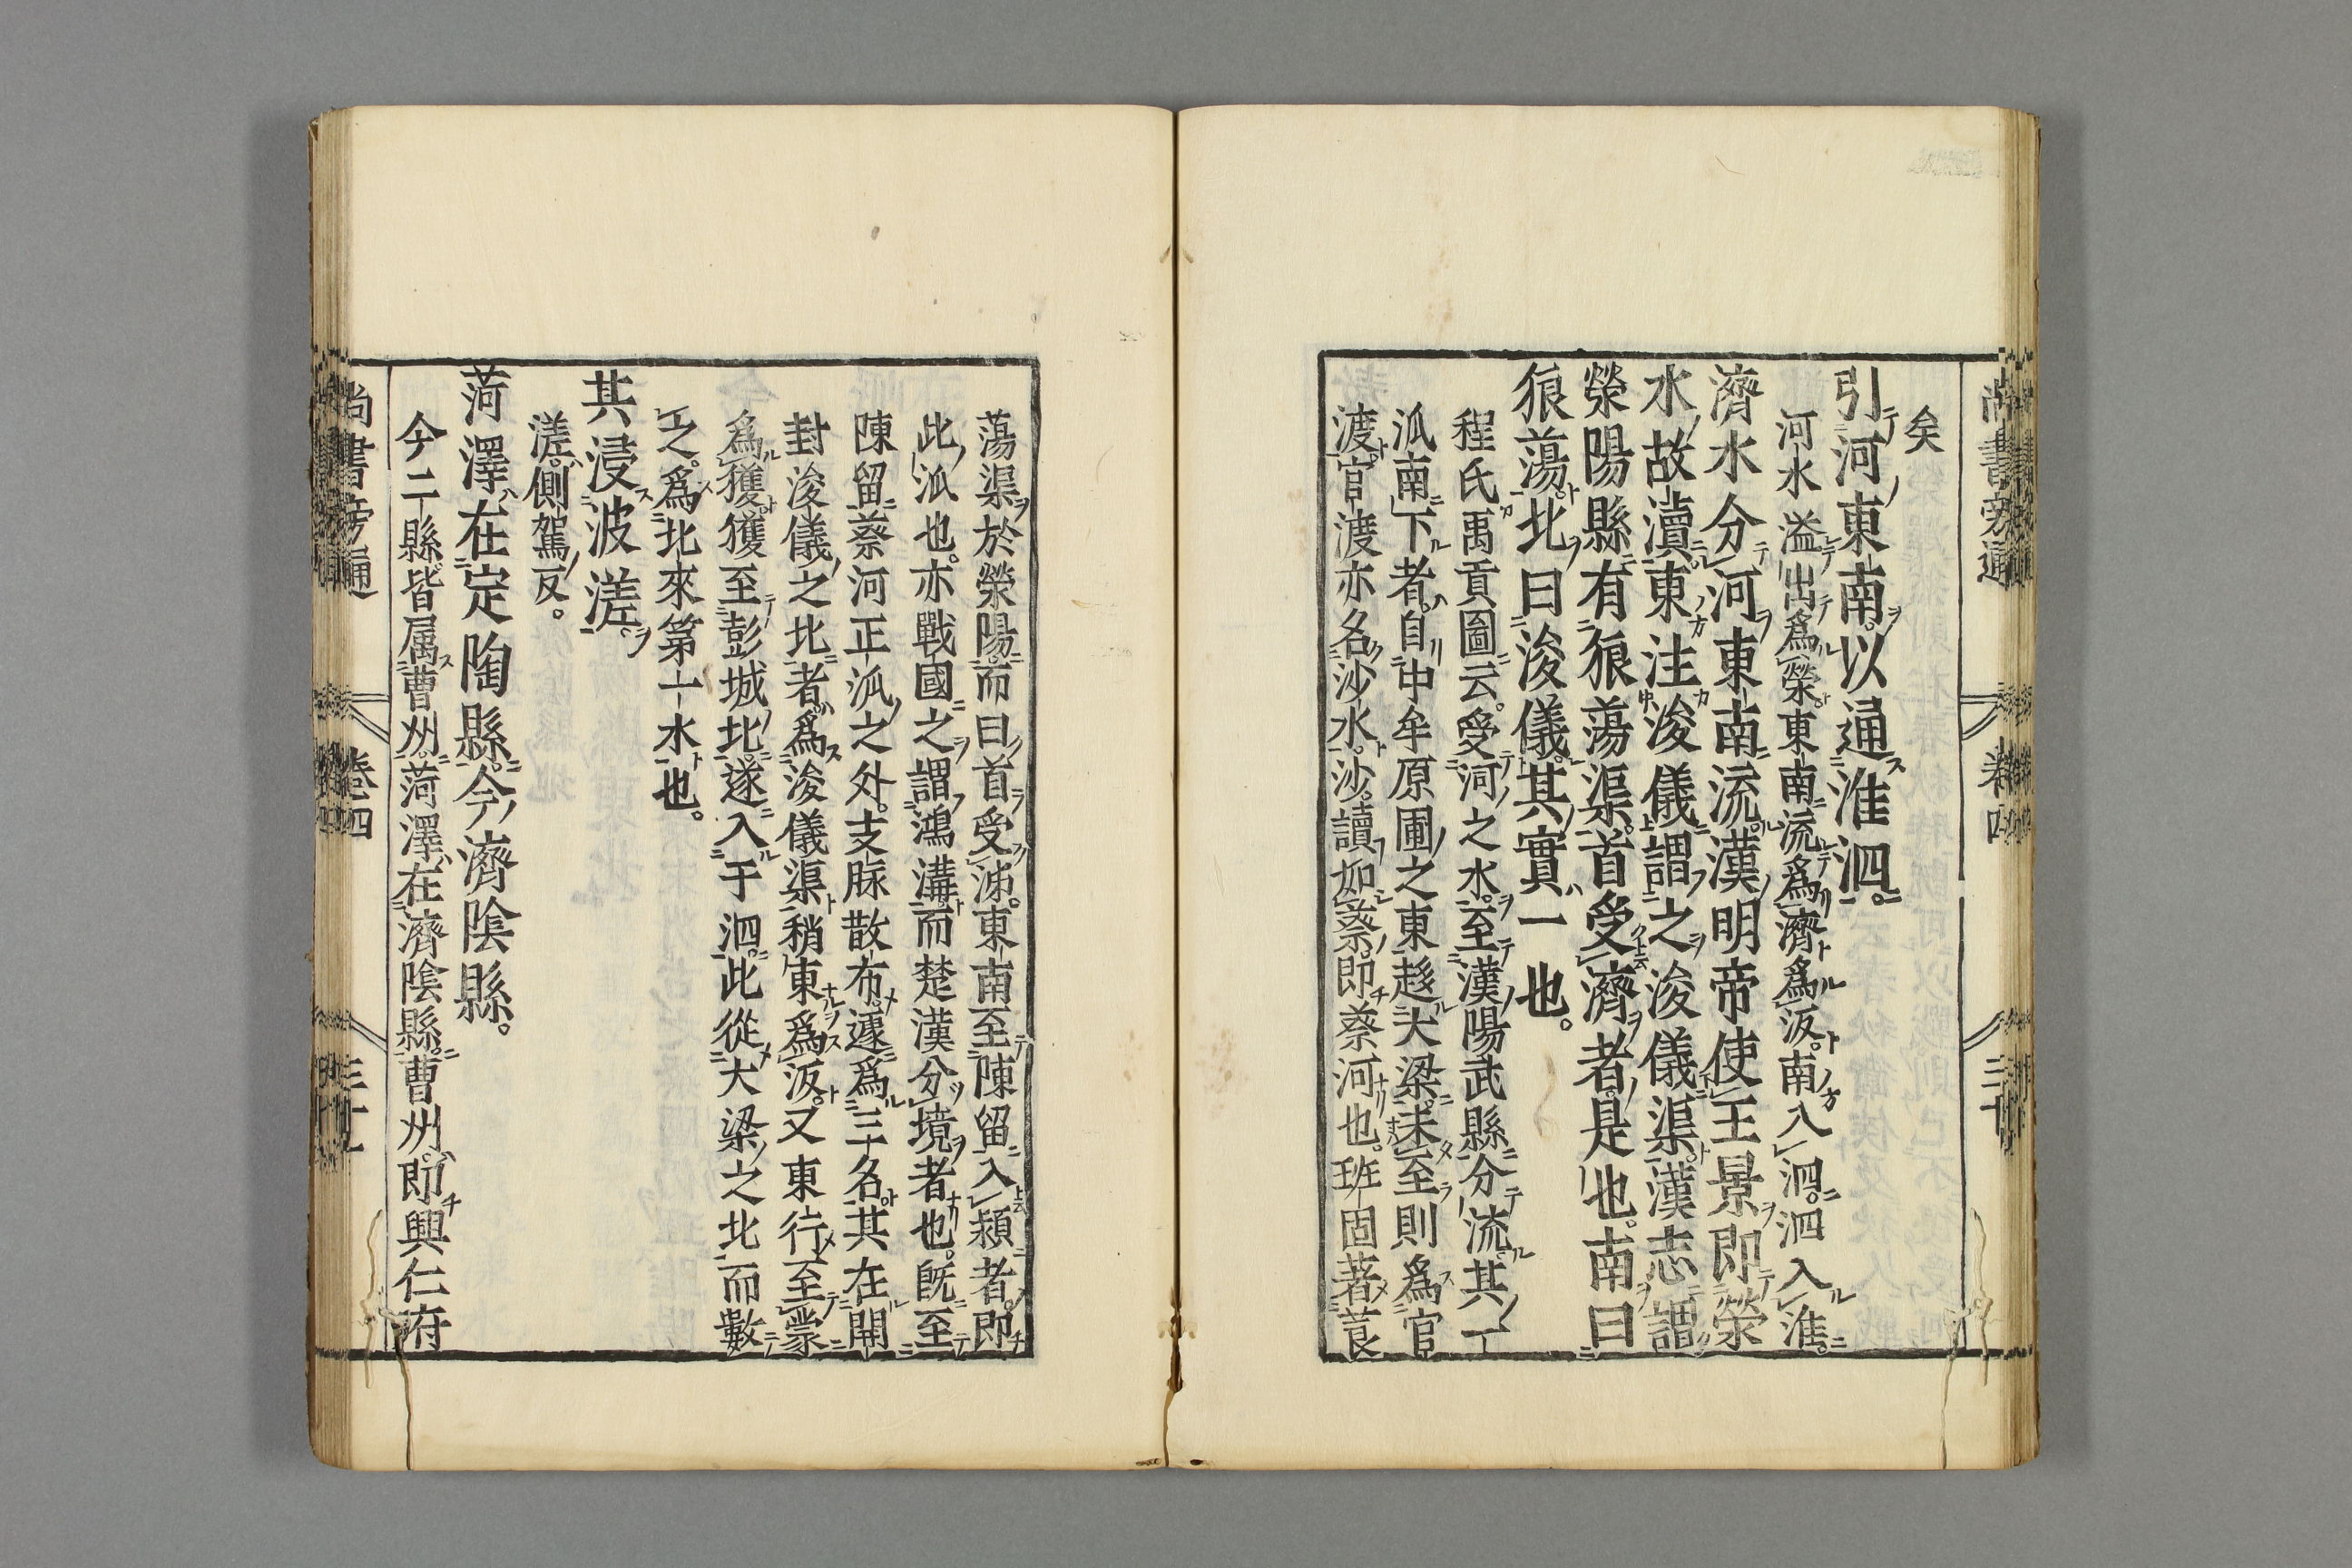 矣
引河東南以通淮泗。
河水溢出爲滎東南流爲濟爲汳南入泗。泗入淮。
濟水分河東南流。漢明帝使王景即滎
水故瀆東注浚儀謂之浚儀渠漢志謂
滎陽縣有狼蕩渠首受濟者是也。南曰
狼蕩北曰浚儀其實一也。
程氏禹貢圖云。受河之水至漢陽武縣分流其一
派南下者自中牟原圃之東趍大梁未至則爲官
渡官渡亦名沙水沙讀如蔡。即蔡河也。班固著莨
蕩渠於滎陽而曰首受泲。東南至陳留入潁者即
此派也。亦戰國之謂鴻溝而楚漢分境者也。既至
陳留蔡河正派之外。支脉散布遂爲三名其在開
封浚儀之北者爲浚儀渠稍東爲汳。又東行至蒙
爲獲獲至彭城北遂入于泗此從大梁之北而數
之。爲北來第一水也。
其浸波溠。
溠側駕反。
菏澤在定陶縣。今濟陰縣。
今二縣皆属曹州菏澤在濟陰縣曹州即興仁府
尚書旁通
卷四